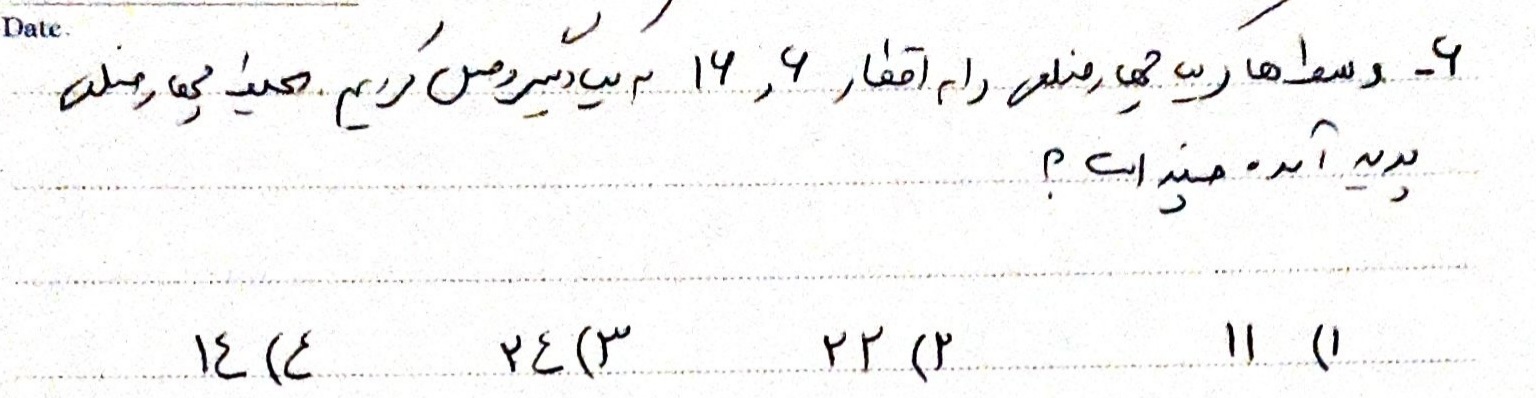 Date.
۶- وسط های چهارضلعی را به اقطار ۶ و ۱۶ به یکدیگر وصل کردیم. محیط چهارضلعی
پدید آمده چند است؟
۱) ۱۱ ۲) ۲۲ ۳) ۲٤ ٤) ۱٤